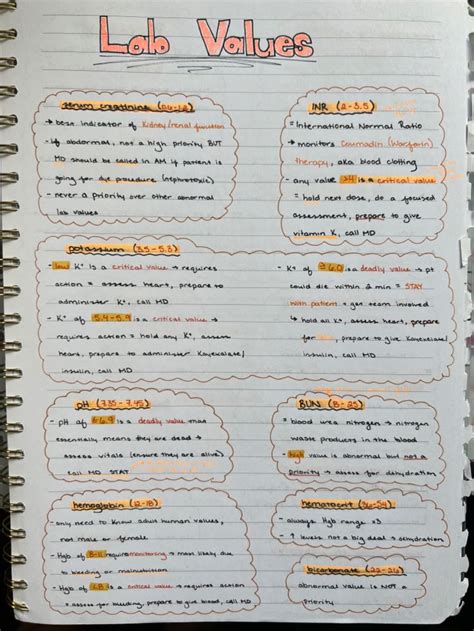 Lab Values
serum creatinine (0.6-1.2)
→ best indicator of kidney/renal function
- if abdormal, not a high priority BUT
MD should be called in AM if patient is
going for dye procedure (nephrotoxic)
- never a priority over other abnormal
lab values
INR (2-3.5)
= International Normal Ratio
→ monitors Coumadin (Warfarin)
therapy, aka blood clotting
- any value >4 is a critical value
= hold next dose, do a focused
assessment, prepare to give
vitamin K, call MD
potassium (3.5-5.3)
- low K+ is a critical value → requires
action = assess heart, prepare to
administer K+, call MD
- K+ of 5.4-5.9 is a critical value →
requires action = hold any K+, assess
heart, prepare to administer Kayexalate/
insulin, call MD
- K+ of ≥6.0 is a deadly value → pt
could die within 2 min = STAY
with patient + get team involved
↳ hold all K+, assess heart, prepare
for prepare to give Kayexelate/
insulin, call MD
pH (7.35-7.45)
- pH of 6.9 is a deadly value that
essentially means they are dead →
assess vitals (ensure they are alive)
call MD STAT
BUN (8-25)
= blood urea nitrogen → nitrogen
waste products in the blood
- high value is abnormal but not a
priority → assess for dehydration
hemoglobin (12-18)
- only need to know adult human values,
not male or female
- Hgb of 8-11 requires monitoring → most likely due
to bleeding or malnutrition
- Hgb of <8 is a critical value → requires action
= assess for bleeding, prepare to give blood, call MD
hematocrit (36-54)
- always Hgb range x3
- ↑ levels not a big deal → dehydration
bicarbonate (22-26)
abnormal value is NOT a
priority